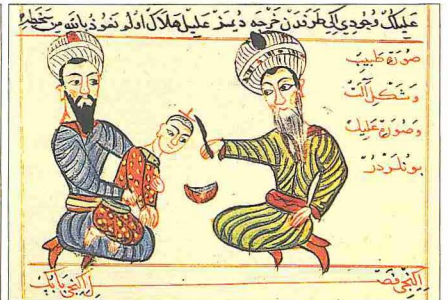 عليلك وجودي اكي طرفدن خرجه ديمز عليل هلاك اولو نعوذ بالله من سخطه
صورة طبيب
وشكل آلت
وصورة عليل
بونلردر
اكنجي فصل اكنجي بابك